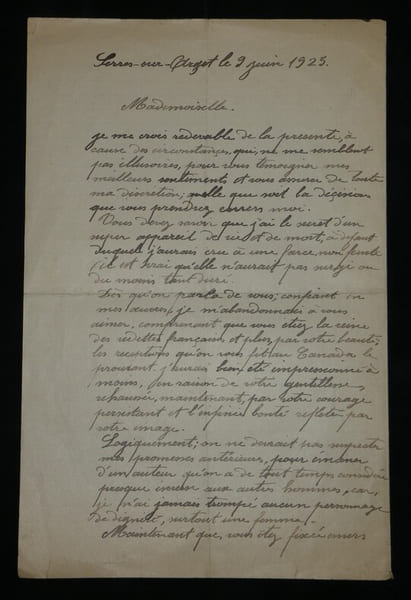 Serres-sur-Arget le 9 juin 1925.
Mademoiselle.
je me crois redevable de la presente, à
cause des circonstances, qui, ne me semblent
pas illusoires, pour vous temoigner mes
meilleurs sentiments et vous assurer de toute
ma discretion; quelle que soit la décision
que vous prendrez envers moi.
Vous devez savoir que j'ai le secret d'un
super appareil de vie et de mort; à défaut
duquel j'aurais cru à une farce, mon
(il est vrai qu'elle n'aurait pas
du moins tant duré.
Dès qu'on parla de vous; confiant en
mes œuvres, je m'abandonnais à vous
aimer, comprenant que vous étiez la reine
des vedettes françaises et plus, par votre beauté;
les receptions qu'on vous fit au Canada le
prouvant. j'aurais bien été impressionné à
moins, en raison de votre gentillesse
rehaussée, maintenant, par votre courage
persistant et l'infinie bonté reflétée par
votre image.
Logiquement; on ne devrait pas suspecter
mes promesses antérieures, pour émaner
d'un auteur qu'on a de tout temps considéré
presque aux autres hommes, car,
je n'ai jamais trompé aucun personnage
de dignité, surtout une femme!
Maintenant que, vous etes fixée envers